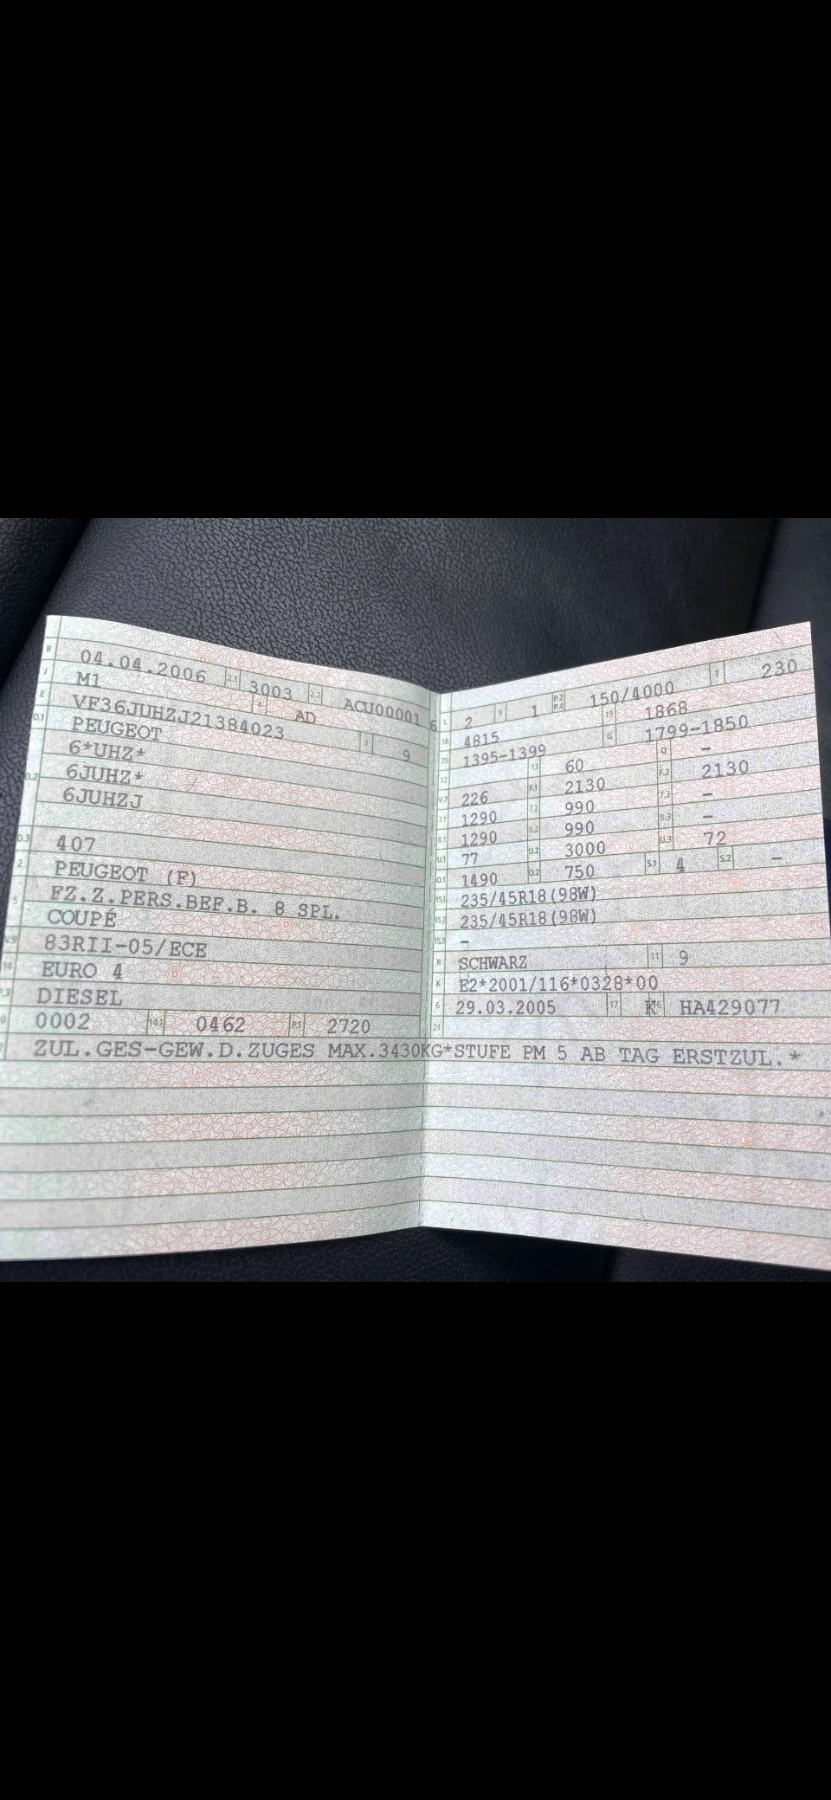 B 04.04.2006 2.1 3003 2.2 ACU00001 6
J M1 4 AD
E VF36JUHZJ21384023 3 9
D.1 PEUGEOT
6*UHZ*
D.2 6JUHZ*
6JUHZJ
D.3 407
2 PEUGEOT (F)
5 FZ.Z.PERS.BEF.B. 8 SPL.
COUPÉ
V.9 83RII-05/ECE
14 EURO 4
P.3 DIESEL
10 0002 14.1 0462 P.1 2720
L 2 9 1 P.2 P.4 150/4000 T 230
18 4815 19 1868
20 1395-1399 G 1799-1850
12 13 60 Q -
V.7 226 F.1 2130 F.2 2130
7.1 1290 7.2 990 7.3 -
8.1 1290 8.2 990 8.3 -
U.1 77 U.2 3000 U.3 72
O.1 1490 O.2 750 S.1 4 S.2 -
15.1 235/45R18(98W)
15.2 235/45R18(98W)
15.3 -
R SCHWARZ 11 9
K E2*2001/116*0328*00
6 29.03.2005 17 K 16 HA429077
21
ZUL.GES-GEW.D.ZUGES MAX.3430KG*STUFE PM 5 AB TAG ERSTZUL.*